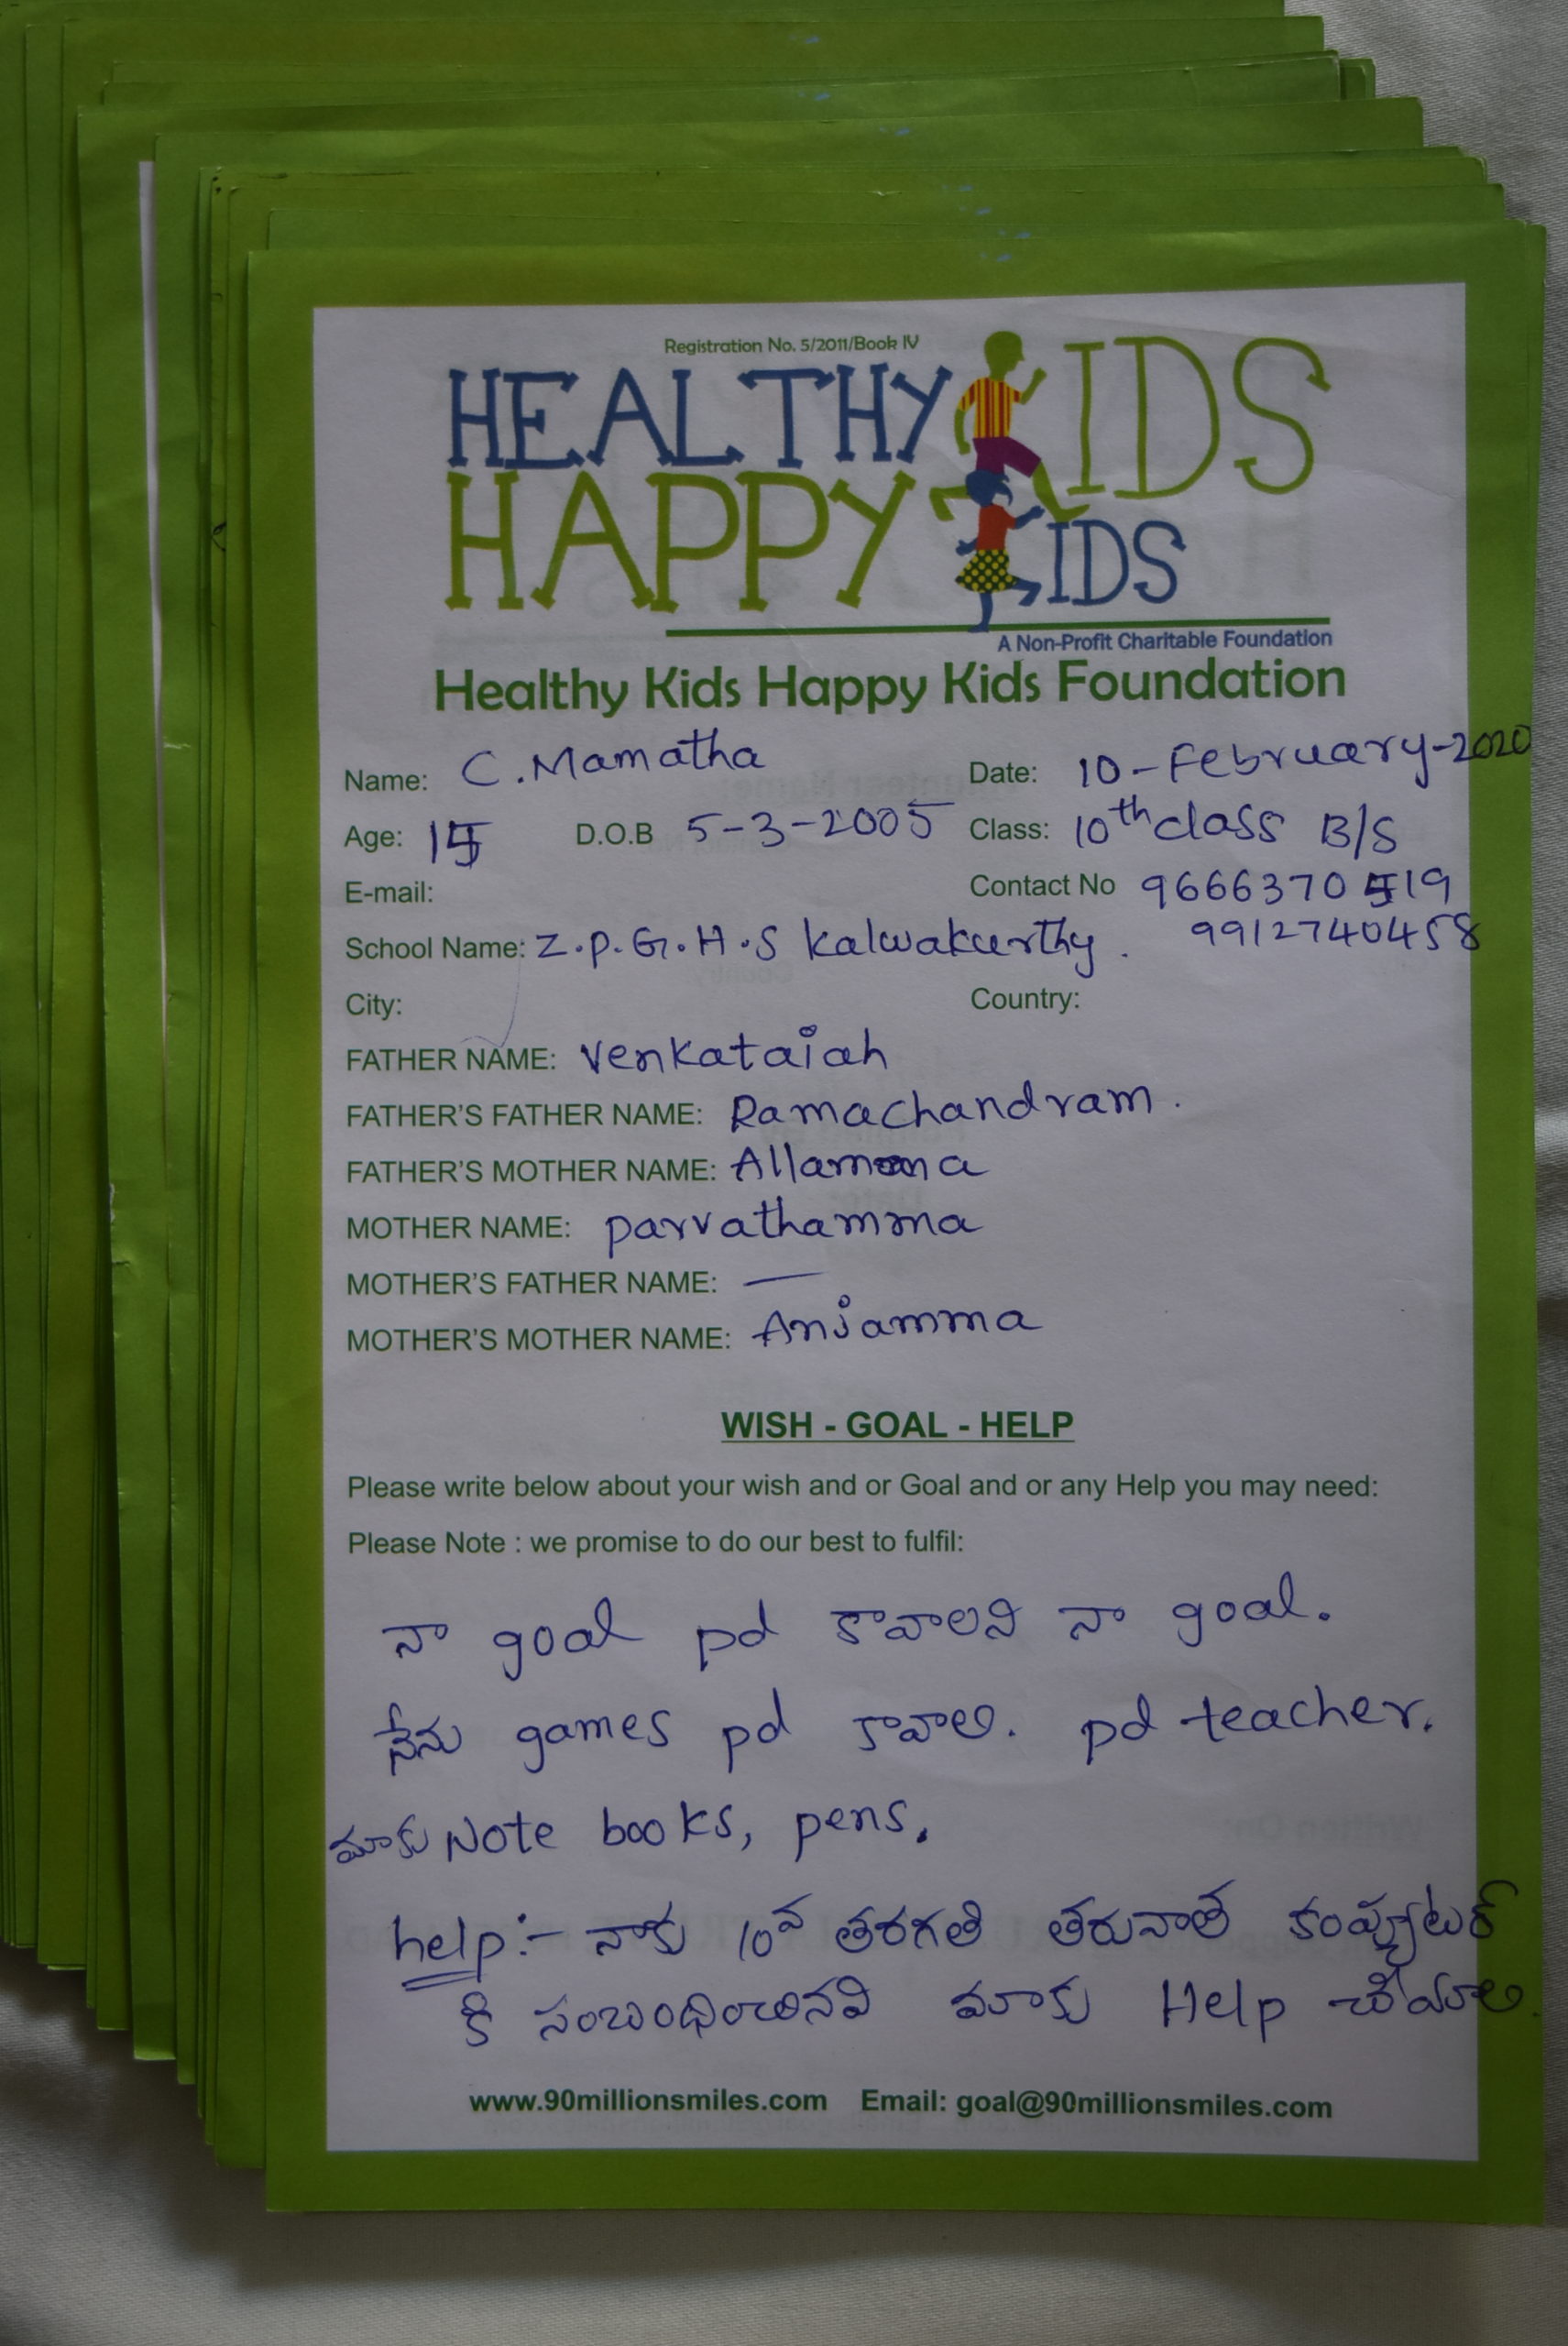 Registration No. 5/2011/Book IV
HEALTHY KIDS
HAPPY KIDS
A Non-Profit Charitable Foundation
Healthy Kids Happy Kids Foundation
Name: C. Mamatha Date: 10-February-2020
Age: 15 D.O.B 5-3-2005 Class: 10th class B/S
E-mail: Contact No 9666370519
School Name: Z.P.G.H.S Kalwakurthy. 9912740458
City: Country:
FATHER NAME: Venkataiah
FATHER'S FATHER NAME: Ramachandram.
FATHER'S MOTHER NAME: Allamma
MOTHER NAME: parvathamma
MOTHER'S FATHER NAME: —
MOTHER'S MOTHER NAME: Anjamma
WISH - GOAL - HELP
Please write below about your wish and or Goal and or any Help you may need:
Please Note : we promise to do our best to fulfil:
నా goal pd కావాలని నా goal.
నేను games pd కావాలి. pd teacher.
మాకు Note books, pens.
help:- నాకు 10వ తరగతి తరువాత కంప్యూటర్
కి సంబంధించినవి మాకు Help చేయాలి.
www.90millionsmiles.com Email: goal@90millionsmiles.com